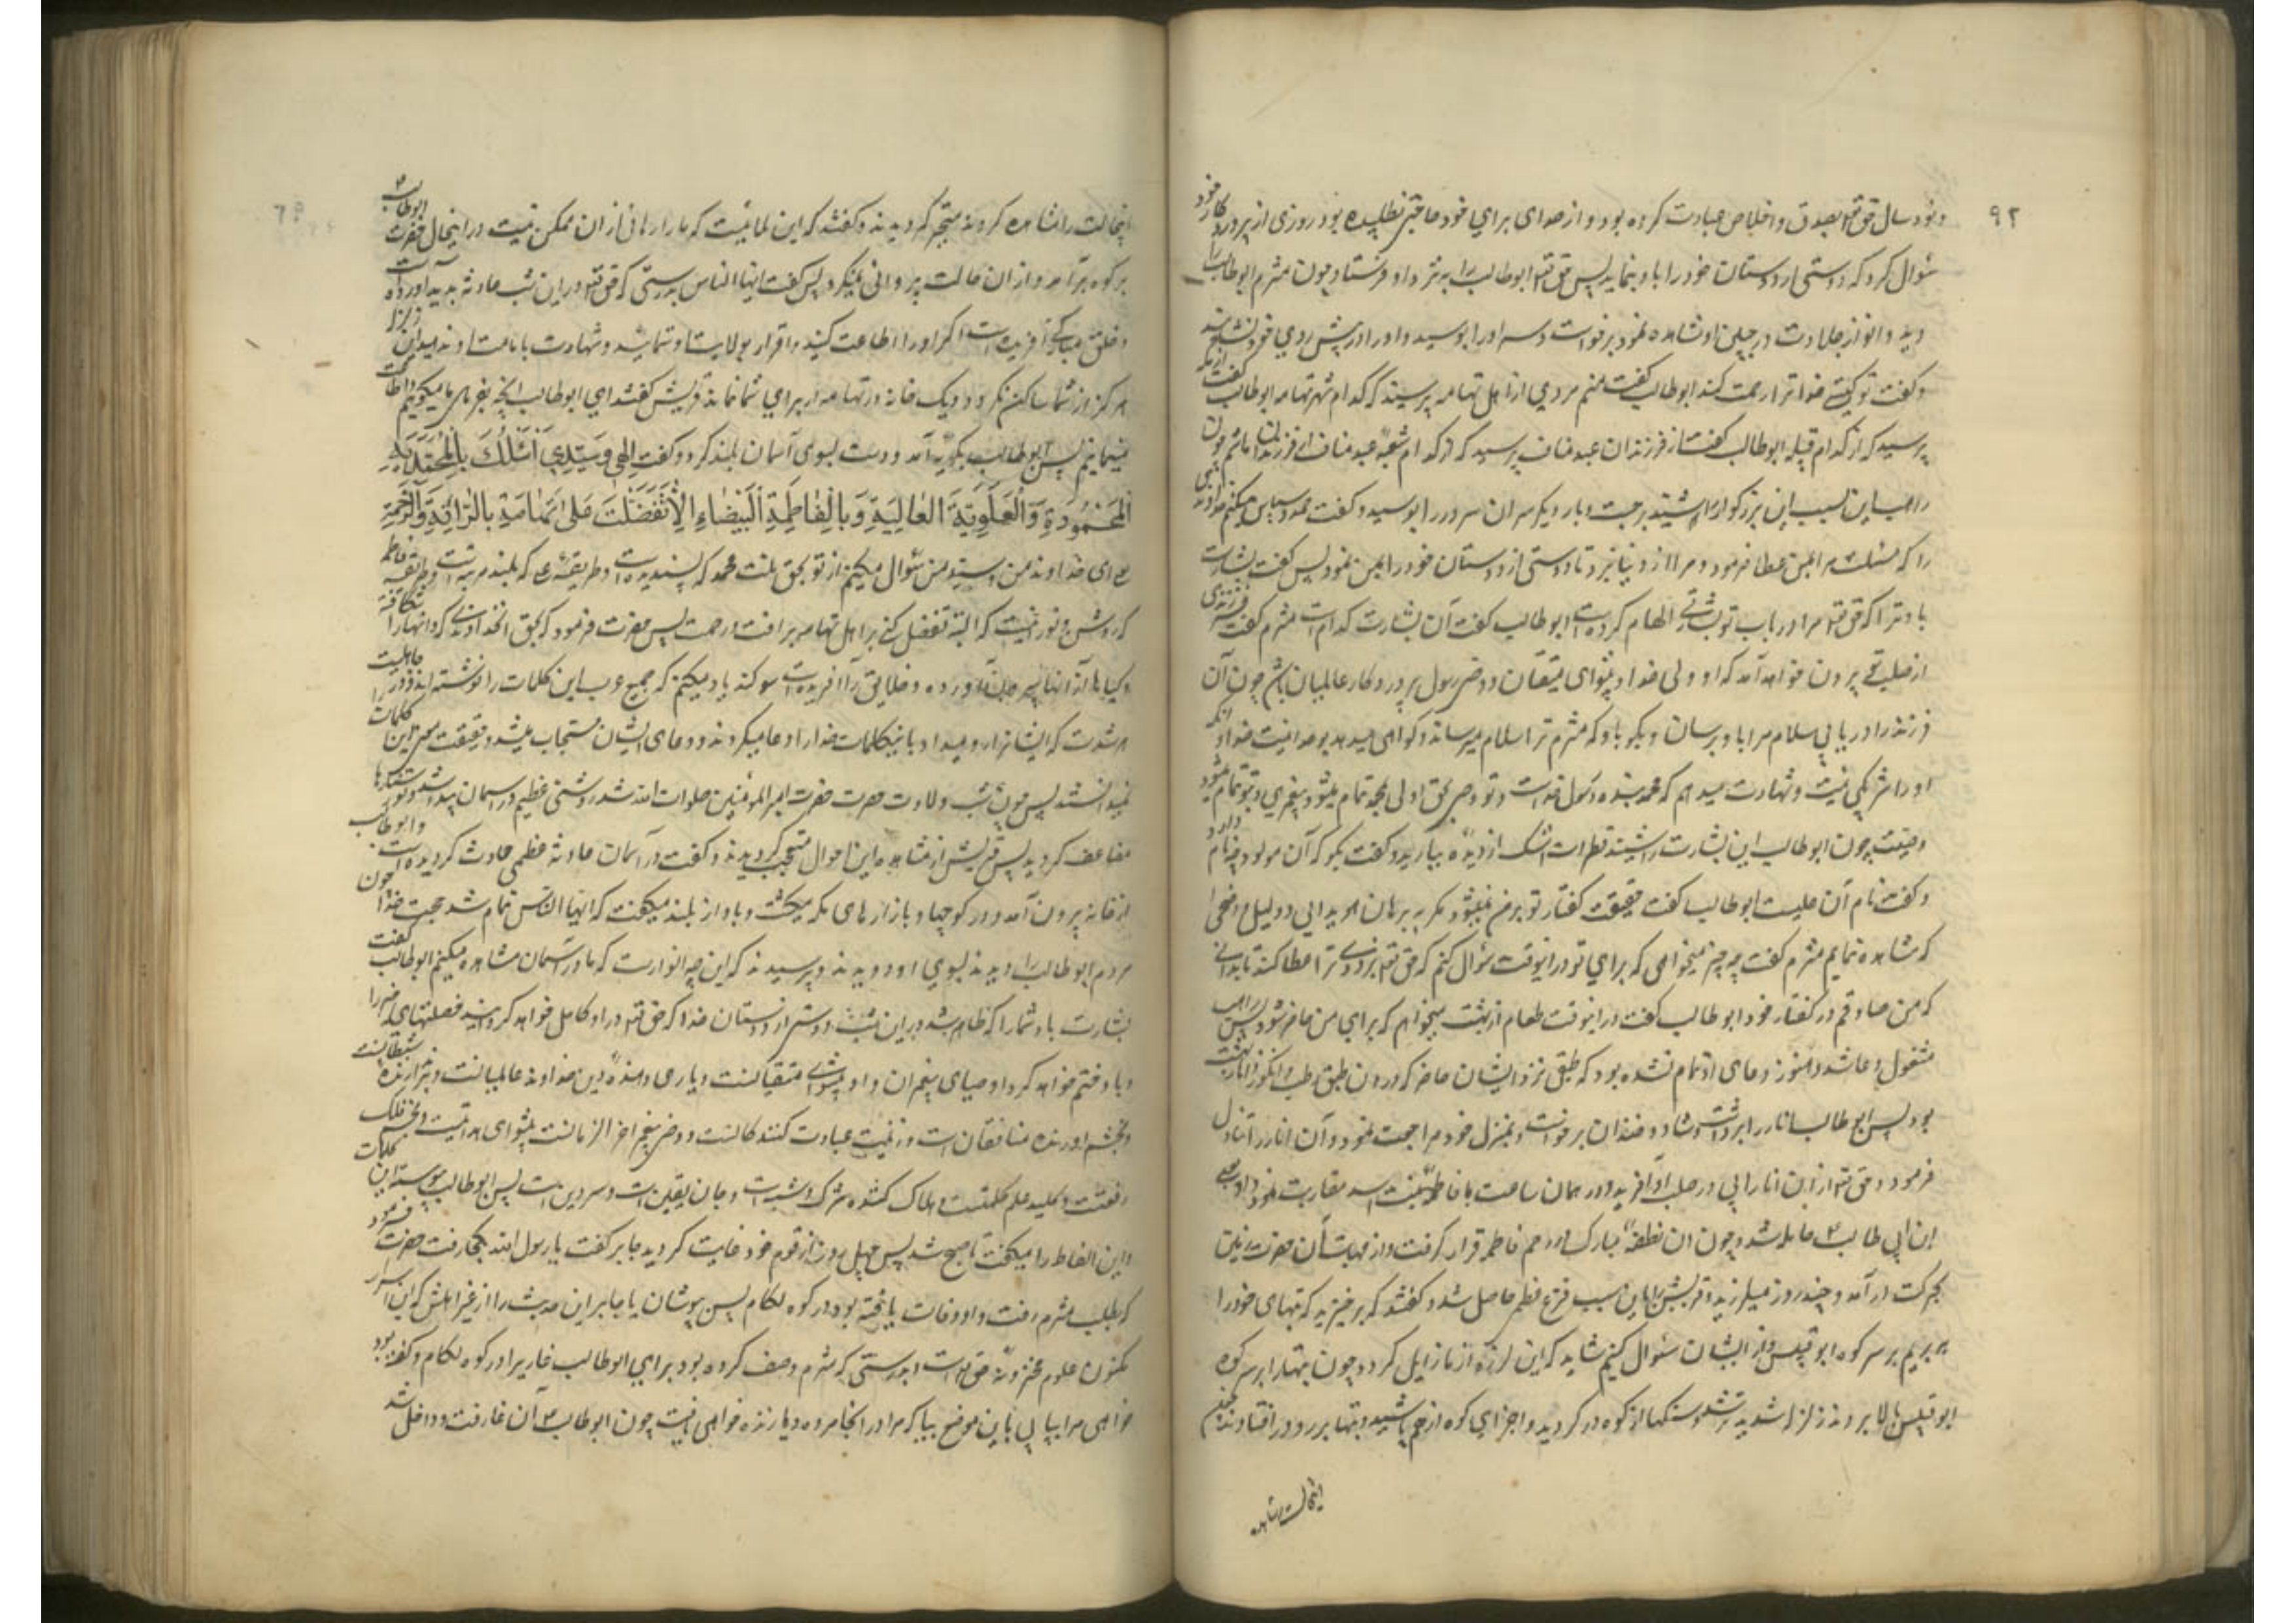 ۹۲
و نود سال حق تعالی بصدق و اخلاص عبادت کرده بود و از خدای برای خود حاجتی نطلبیده بود روزی از پروردگار خود
سؤال کرد که دوستی از دوستان خود را باو بنماید پس حق تعالی ابوطالب را به نزد او فرستاد چون مثرم ابوطالب را
دید و انوار جلادت در جبین او مشاهده نمود برخواست و سر او را بوسید و او را در پیش روی خود نشانید
و گفت تو کیستی خدا ترا رحمت کند ابوطالب گفت منم مردی از اهل تهامه پرسید که کدام شهر تهامه ابوطالب گفت از مکه
پرسید که از کدام قبیله ابوطالب گفت از فرزندان عبد مناف پرسید که از کدام شعبه عبد مناف از فرزندان هاشم چون
راهب این نسب این بزرگوار را شنید برجست و بار دیگر سر آن سرور را بوسید و گفت حمد و سپاس میکنم خداوندی
را که مسئلت مرا بمن عطا فرمود و مرا از دنیا نبرد تا دوستی از دوستان خود را بمن نمود پس گفت بشارت
باد ترا که حق تعالی مرا در باب تو بشارتی الهام کرده است ابوطالب گفت آن بشارت کدام است مثرم گفت فرزندی
از صلب تو بیرون خواهد آمد که او ولی خدا و پیشوای متقیان و وصی رسول پروردگار عالمیان باشد چون آن
فرزند را دریابی سلام مرا باو برسان و بگو باو که مثرم ترا سلام میرساند و گواهی میدهد بوحدانیت خدا و آنکه
او را شریکی نیست و شهادت میدهم که محمد بنده و رسول خداست و تو وصی بحق اولی بمحمد تمام میشود پیغمبری و بتو تمام میشود
وصیت چون ابوطالب این بشارت را شنید قطرات اشک از دیده ببارید و گفت بگو که آن مولود چه نام دارد
و گفت نام آن علیست ابوطالب گفت حقیقت گفتار تو بر من نمیشود مگر به برهان هویدایی و دلیل واضحی
که مشاهده نمایم مثرم گفت چه چیز میخواهی که برای تو در اینوقت سؤال کنم که حق تعالی بزودی ترا عطا کند تا بدانی
که من صادقم در گفتار خود ابوطالب گفت در اینوقت طعام از بهشت میخواهم که برای من حاضر شود پس راهب
مشغول دعا شد و هنوز دعای او تمام نشده بود که طبقی نزد ایشان حاضر که درون طبق رطب و انگور و انار بهشت
بود پس ابوطالب انار را برداشت و شاد و خندان برخواست و بمنزل خود مراجعت نمود و آن انار را تناول
فرمود و حق تعالی از آن انار آبی در صلب او آفرید و در همان ساعت با فاطمه بنت اسد مقاربت نمود و او بعلی
ابن ابی طالب حامله شد و چون آن نطفه مبارک در رحم فاطمه قرار گرفت و از مهابت آن حضرت زمین
بحرکت در آمد و چند روز میلرزید و قریش را باین سبب فزع عظیم حاصل شد و گفتند که برخیزید که بتهای خود را
ببریم بر سر کوه ابوقبیس و از ایشان سؤال کنیم شاید که این لرزه از ما زایل گردد و چون بتها را بر سر کوه
ابوقبیس بالا بردند زلزله شدیدتر شد و سنگها از کوه در گردید و اجزای کوه از هم پاشید و بتها بر رو در افتادند چون
اینحالت را مشاهده
اینحالت را مشاهده کردند متحیر گردیدند و گفتند که این بلائیست که ما را رهائی از آن ممکن نیست در اینحال حضرت ابوطالب
بر کوه برآمد و از آن حالت پروائی نمیکرد پس گفت ایها الناس بدرستی که حق تعالی در این شب حادثه پدید آورده است
و خلقی آفریده است اگر او را اطاعت کنید و اقرار بولایت او ننمائید و شهادت بامامت او ندهید این زلزله
هرگز از شما ساکن نگردد و یک خانه در تهامه از برای شما نماند قریش گفتند ای ابوطالب آنچه بفرمائی ما میگوئیم و اطاعت
مینمائیم پس ابوطالب بگریه آمد و دست بسوی آسمان بلند کرد و گفت الهی وسیدی اسئلک بالمحمدیة
المحمودة والعلویة العالیة وبالفاطمیة البیضاء الا تفضلت علی تهامة بالرأفة والرحمة
یعنی ای خداوند من و سید من سؤال میکنم از تو بحق ملت محمد که پسندیده است و طریقه علی که بلند مرتبه است و طریقه فاطمه
که روشن و نورانیست که البته تفضل کنی بر اهل تهامه برأفت و رحمت پس حضرت فرمود که بحق آنخداوندی که دانها را شکافته
و گیاهها از آنها بیرون آورده و خلایق را آفریده است سوگند یاد میکنم که جمیع عرب این کلمات را نوشته اند و در جاهلیت
هر شدت که ایشانرا رو میداد باینکلمات خدا را دعا میکردند و دعای ایشان مستجاب میشد و حقیقت معنی این کلمات را
نمیدانستند پس چون شب ولادت حضرت امیر المؤمنین صلوات الله شد روشنی عظیم در آسمان پیدا شد و نور ستاره‌ها
مضاعف گردید پس قریش از مشاهده این احوال متعجب گردیدند و گفت در آسمان حادثه عظمی حادث گردیده است و ابوطالب
از خانه بیرون آمد و در کوچها و بازارهای مکه میگشت و باواز بلند میگفت که ایها الناس تمام شد حجت خدا چون
مردم ابوطالب را دیدند بسوی او دویدند و پرسیدند که این چه انوار است که ما در آسمان مشاهده میکنیم ابوطالب گفت
بشارت باد شما را که ظاهر شد در این شب دوستی از دوستان خدا که حق تعالی در او کامل خواهد گردانید خصلتهای خیر را
و باو ختم خواهد کرد اوصیای پیغمبران و او پیشوای متقیانست و یاری دهنده دین خداوند عالمیانست و
و بخشم آورنده منافقان است و زینت عبادت کنندگانست و وصی پیغمبر آخر الزمانست پیشوای هدایت و نجم فلک
رفعت و کلید علم حکمت است و هلاک کننده شرک و شبهه است و جان یقین است و سر دین است پس ابوطالب پیوسته این کلمات
و این الفاظ را میگفت تا صبح شد پس چهل روز از قوم خود غایب گردید جابر گفت یا رسول الله بکجا رفت حضرت فرمود
که بطلب مثرم رفت و او وفات یافته بود در کوه لکام پس بپوشان یا جابر این حدیث را از غیر اهلش که این اسرار
مکنون علوم مخزونه حق تعالی است بدرستی که مثرم وصف کرده بود برای ابوطالب غاری را در کوه لکام و گفته بود
خواهی مرا بیابی باین موضع بیا که مرا در آنجا مرده و یا زنده خواهی یافت چون ابوطالب آن غار رفت و داخل شد